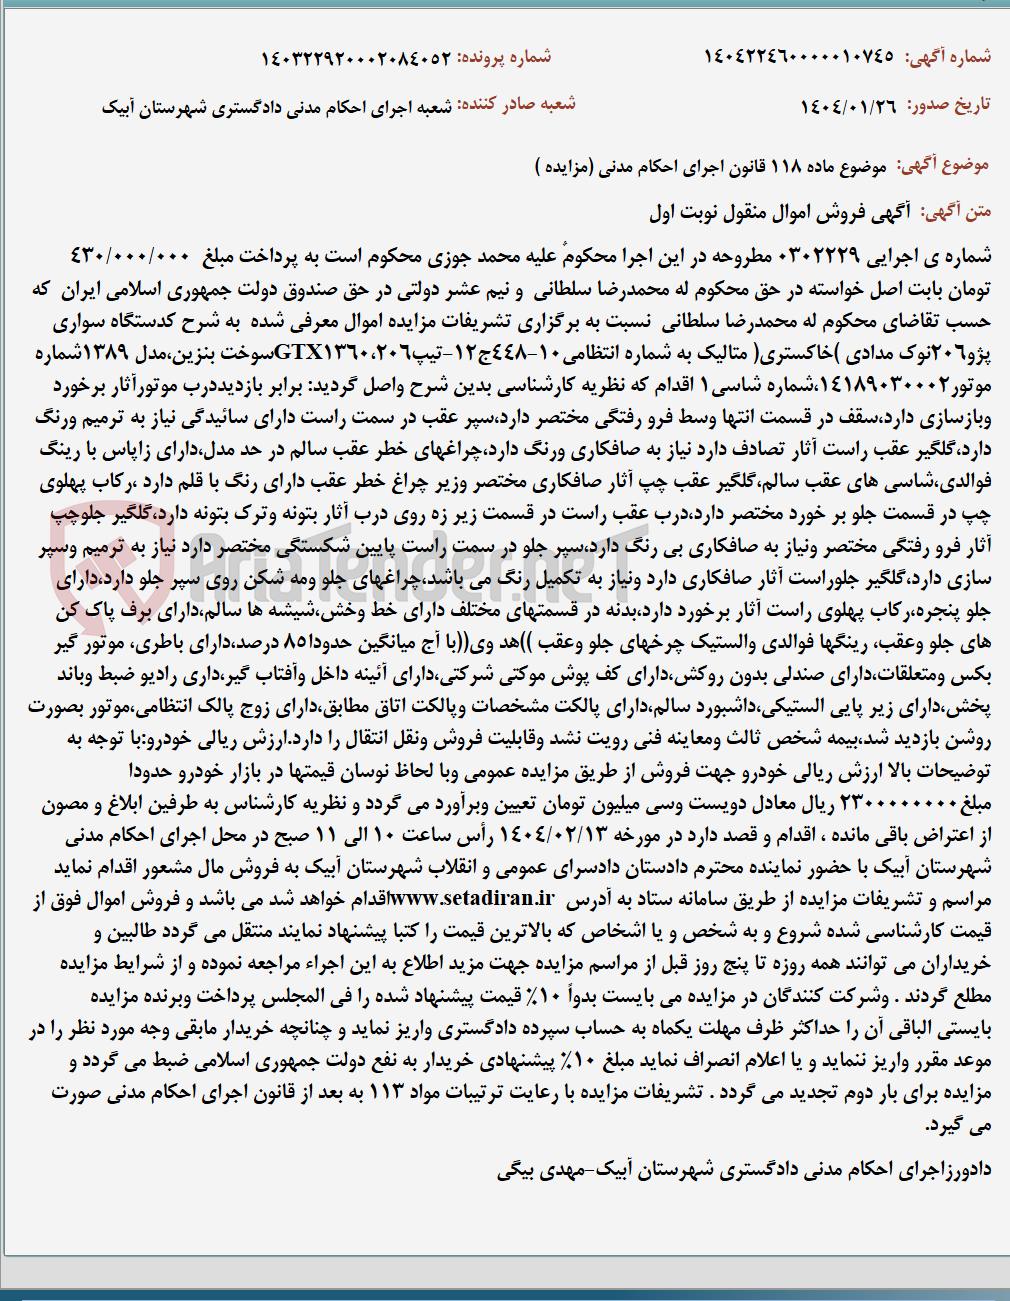 شماره آگهی: ۱۴۰۴۲۲۴۶۰۰۰۰۰۱۰۷۴۵ شماره پرونده: ۱۴۰۳۲۲۹۲۰۰۰۲۰۸۴۰۵۲
تاریخ صدور: ۱۴۰۴/۰۱/۲۶ شعبه صادر کننده: شعبه اجرای احکام مدنی دادگستری شهرستان آبیک
موضوع آگهی: موضوع ماده ۱۱۸ قانون اجرای احکام مدنی (مزایده )
متن آگهی: آگهی فروش اموال منقول نوبت اول
شماره ی اجرایی ۰۳۰۲۲۲۹ مطروحه در این اجرا محکومٌ علیه محمد جوزی محکوم است به پرداخت مبلغ ۴۳۰/۰۰۰/۰۰۰
تومان بابت اصل خواسته در حق محکوم له محمدرضا سلطانی و نیم عشر دولتی در حق صندوق دولت جمهوری اسلامی ایران که
حسب تقاضای محکوم له محمدرضا سلطانی نسبت به برگزاری تشریفات مزایده اموال معرفی شده به شرح کدستگاه سواری
پژو۲۰۶نوک مدادی )خاکستری( متالیک به شماره انتظامی۱۰-۴۴۸ج۱۲-تیپ۲۰۶،GTX۱۳۶۰سوخت بنزین،مدل ۱۳۸۹شماره
موتور۱۴۱۸۹۰۳۰۰۰۲،شماره شاسی۱ اقدام که نظریه کارشناسی بدین شرح واصل گردید: برابر بازدیددرب موتورآثار برخورد
وبازسازی دارد،سقف در قسمت انتها وسط فرو رفتگی مختصر دارد،سپر عقب در سمت راست دارای سائیدگی نیاز به ترمیم ورنگ
دارد،گلگیر عقب راست آثار تصادف دارد نیاز به صافکاری ورنگ دارد،چراغهای خطر عقب سالم در حد مدل،دارای زاپاس با رینگ
فوالدی،شاسی های عقب سالم،گلگیر عقب چپ آثار صافکاری مختصر وزیر چراغ خطر عقب دارای رنگ با قلم دارد ،رکاب پهلوی
چپ در قسمت جلو بر خورد مختصر دارد،درب عقب راست در قسمت زیر زه روی درب آثار بتونه وترک بتونه دارد،گلگیر جلوچپ
آثار فرو رفتگی مختصر ونیاز به صافکاری بی رنگ دارد،سپر جلو در سمت راست پایین شکستگی مختصر دارد نیاز به ترمیم وسپر
سازی دارد،گلگیر جلوراست آثار صافکاری دارد ونیاز به تکمیل رنگ می باشد،چراغهای جلو ومه شکن روی سپر جلو دارد،دارای
جلو پنجره،رکاب پهلوی راست آثار برخورد دارد،بدنه در قسمتهای مختلف دارای خط وخش،شیشه ها سالم،دارای برف پاک کن
های جلو وعقب، رینگها فوالدی والستیک چرخهای جلو وعقب ))هد وی((با آج میانگین حدودا۸۵ درصد،دارای باطری، موتور گیر
بکس ومتعلقات،دارای صندلی بدون روکش،دارای کف پوش موکتی شرکتی،دارای آئینه داخل وآفتاب گیر،داری رادیو ضبط وباند
پخش،دارای زیر پایی الستیکی،داشبورد سالم،دارای پالکت مشخصات وپالکت اتاق مطابق،دارای زوج پالک انتظامی،موتور بصورت
روشن بازدید شد،بیمه شخص ثالث ومعاینه فنی رویت نشد وقابلیت فروش ونقل انتقال را دارد.ارزش ریالی خودرو:با توجه به
توضیحات بالا ارزش ریالی خودرو جهت فروش از طریق مزایده عمومی وبا لحاظ نوسان قیمتها در بازار خودرو حدودا
مبلغ۲۳۰۰۰۰۰۰۰۰ ریال معادل دویست وسی میلیون تومان تعیین وبرآورد می گردد و نظریه کارشناس به طرفین ابلاغ و مصون
از اعتراض باقی مانده ، اقدام و قصد دارد در مورخه ۱۴۰۴/۰۲/۱۳ رأس ساعت ۱۰ الی ۱۱ صبح در محل اجرای احکام مدنی
شهرستان آبیک با حضور نماینده محترم دادستان دادسرای عمومی و انقلاب شهرستان آبیک به فروش مال مشعور اقدام نماید
مراسم و تشریفات مزایده از طریق سامانه ستاد به آدرس www.setadiran.irاقدام خواهد شد می باشد و فروش اموال فوق از
قیمت کارشناسی شده شروع و به شخص و یا اشخاص که بالاترین قیمت را کتبا پیشنهاد نمایند منتقل می گردد طالبین و
خریداران می توانند همه روزه تا پنج روز قبل از مراسم مزایده جهت مزید اطلاع به این اجراء مراجعه نموده و از شرایط مزایده
مطلع گردند . وشرکت کنندگان در مزایده می بایست بدواً ۱۰٪ قیمت پیشنهاد شده را فی المجلس پرداخت وبرنده مزایده
بایستی الباقی آن را حداکثر ظرف مهلت یکماه به حساب سپرده دادگستری واریز نماید و چنانچه خریدار مابقی وجه مورد نظر را در
موعد مقرر واریز ننماید و یا اعلام انصراف نماید مبلغ ۱۰٪ پیشنهادی خریدار به نفع دولت جمهوری اسلامی ضبط می گردد و
مزایده برای بار دوم تجدید می گردد . تشریفات مزایده با رعایت ترتیبات مواد ۱۱۳ به بعد از قانون اجرای احکام مدنی صورت
می گیرد.
دادورزاجرای احکام مدنی دادگستری شهرستان آبیک-مهدی بیگی
AriaTender.neT